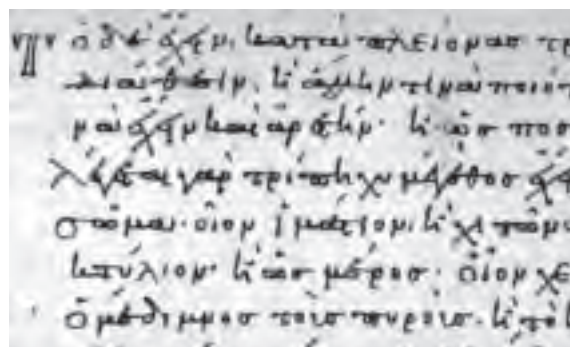 Τὸ δὲ ἔχειν, κατὰ πλείονας τρ
διάθεσιν, ἢ ἄλλην τινὰ ποιότ
μὴν ἔχειν καὶ ἀρετήν· ἢ ὡς ποσ
λέγεται γὰρ τρίπηχυ μέγεθος ἔχ
σῶμα· οἷον ἱμάτιον, ἢ χιτῶν
κτύλιον· ἢ ὡς μέρος· οἷον χε
ὁ μέδιμνος τοὺς πυροὺς· ἢ τὸ κ